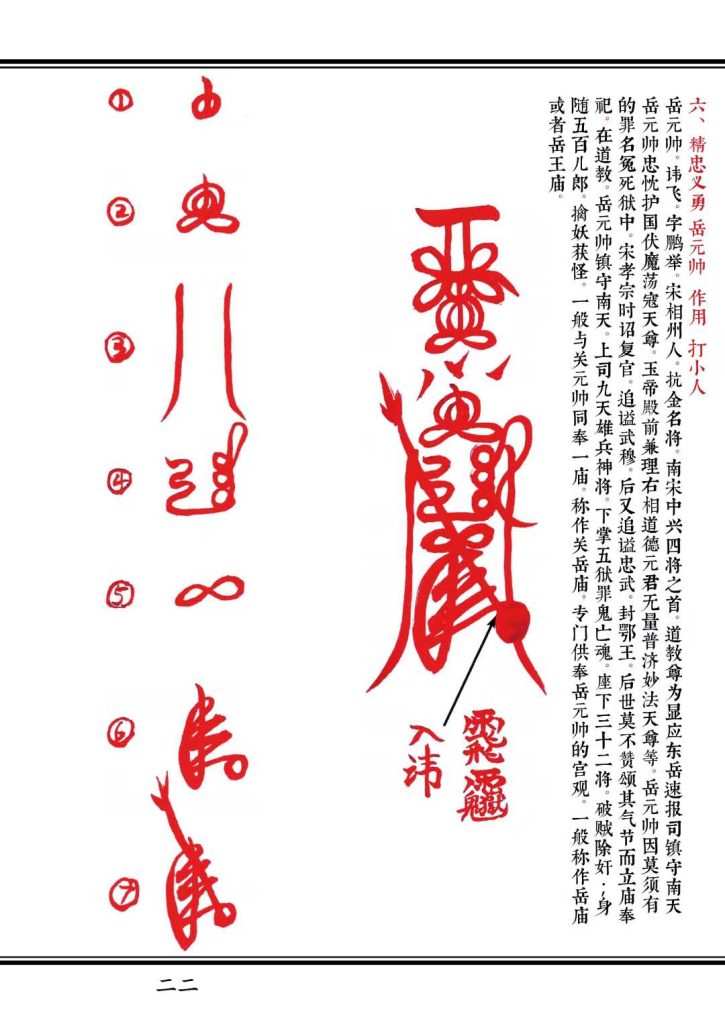 六、精忠义勇 岳元帅 作用 打小人
岳元帅。讳飞。字鹏举。宋相州人。抗金名将。南宋中兴四将之首。道教尊为显应东岳速报司镇守南天
岳元帅忠忱护国伏魔荡寇天尊。玉帝殿前兼理右相道德元君无量普济妙法天尊等。岳元帅因莫须有
的罪名冤死狱中。宋孝宗时诏复官。追谥武穆。后又追谥忠武。封鄂王。后世莫不赞颂其气节而立庙奉
祀。在道教。岳元帅镇守南天。上司九天雄兵神将。下掌五狱罪鬼亡魂。座下三十二将。破贼除奸.身
随五百儿郎。擒妖获怪。一般与关元帅同奉一庙。称作关岳庙。专门供奉岳元帅的宫观。一般称作岳庙
或者岳王庙。
入讳
①
②
③
④
⑤
⑥
⑦
二二